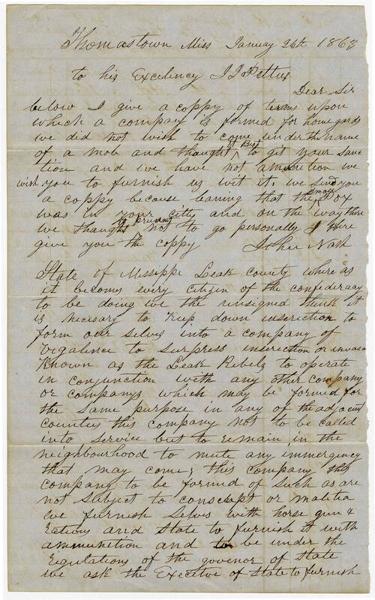 Thomastown Miss January 24th 1863
to his Excelency J J Pettus
Dear Sir
below I give a coppy of terms upon
which a company is formed for home gards
we did not wish to come under the name
of a mob and thought it Best to get your sanc
tion and we have not amunition we
wish you to furnish us wit it, we send you
a coppy because leaning that the Small Pox
was in your citty and on the way there
we thought it prudent not to go personally I Here
give you the coppy John Nash
State of Missippi Leak county where as
it becoms every citizen of the confederacy
to be doing we the unsigned think it
is necisary to Keep down inserection to
form our selves into a company of
Vigalence to surpress inserection or invasion
Known as the Leak Rebels to operate
in conjunction with any other company
or companys which may be formed for
the same purpose in any of the adjacent
counties this company not to be called
into service but to remain in the
neighbourhood to mute any immergency
that may come, this company this
company to be formed of such as are
not subject to conscript or malitia
we furnish selves with horse gun &
rations and State to furnish it with
ammunition and to be under the
regulations of the govenor of State
we ask the Exective of State to furnish